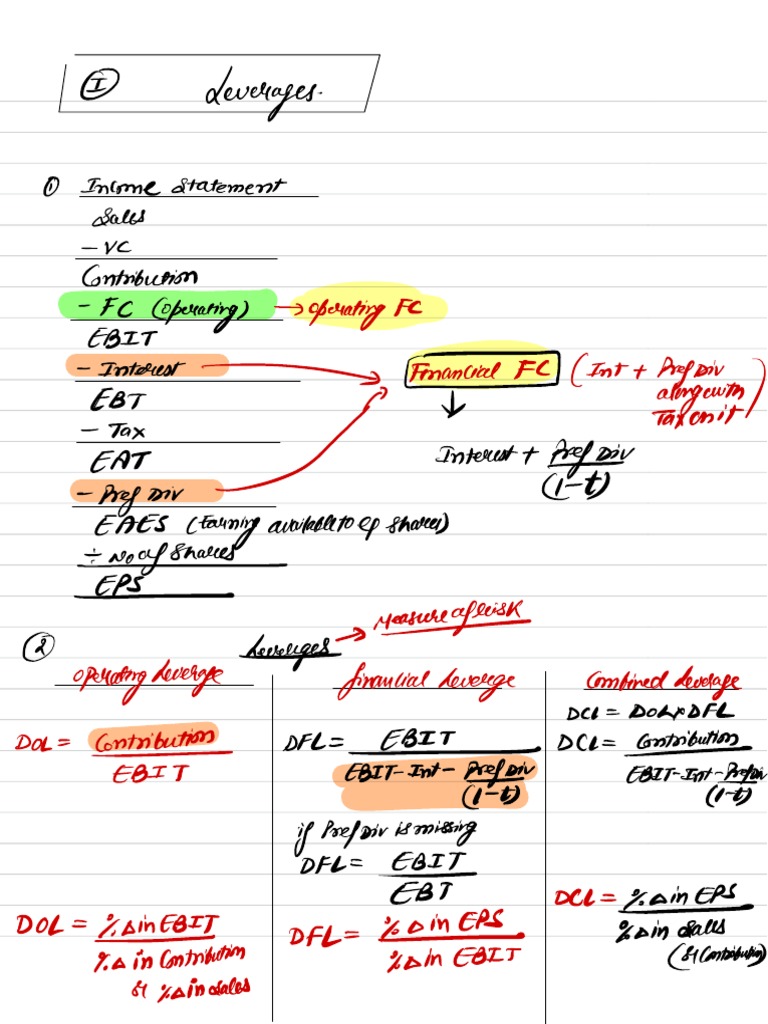 I Leverages.
① Income Statement
Sales
- VC
Contribution
- FC (Operating) → Operating FC
EBIT
- Interest
Financial FC (Int + Pref Div
along with
Tax on it)
EBT
- Tax
Interest + Pref Div
(1-t)
EAT
- Pref Div
EAES (Earning available to eq shares)
÷ No of Shares
EPS
② Leverages → Measure of Risk
Operating Leverage
DOL = Contribution
EBIT
DOL = % Δ in EBIT
% Δ in Contribution
or % Δ in Sales
financial Leverge
DFL = EBIT
EBIT-Int-Pref Div
(1-t)
if Pref Div is missing
DFL = EBIT
EBT
DFL = % Δ in EPS
% Δ in EBIT
Combined Leverage
DCL = DOL x DFL
DCL = Contribution
EBIT-Int-Pref Div
(1-t)
DCL = % Δ in EPS
% Δ in Sales
(or Contribution)